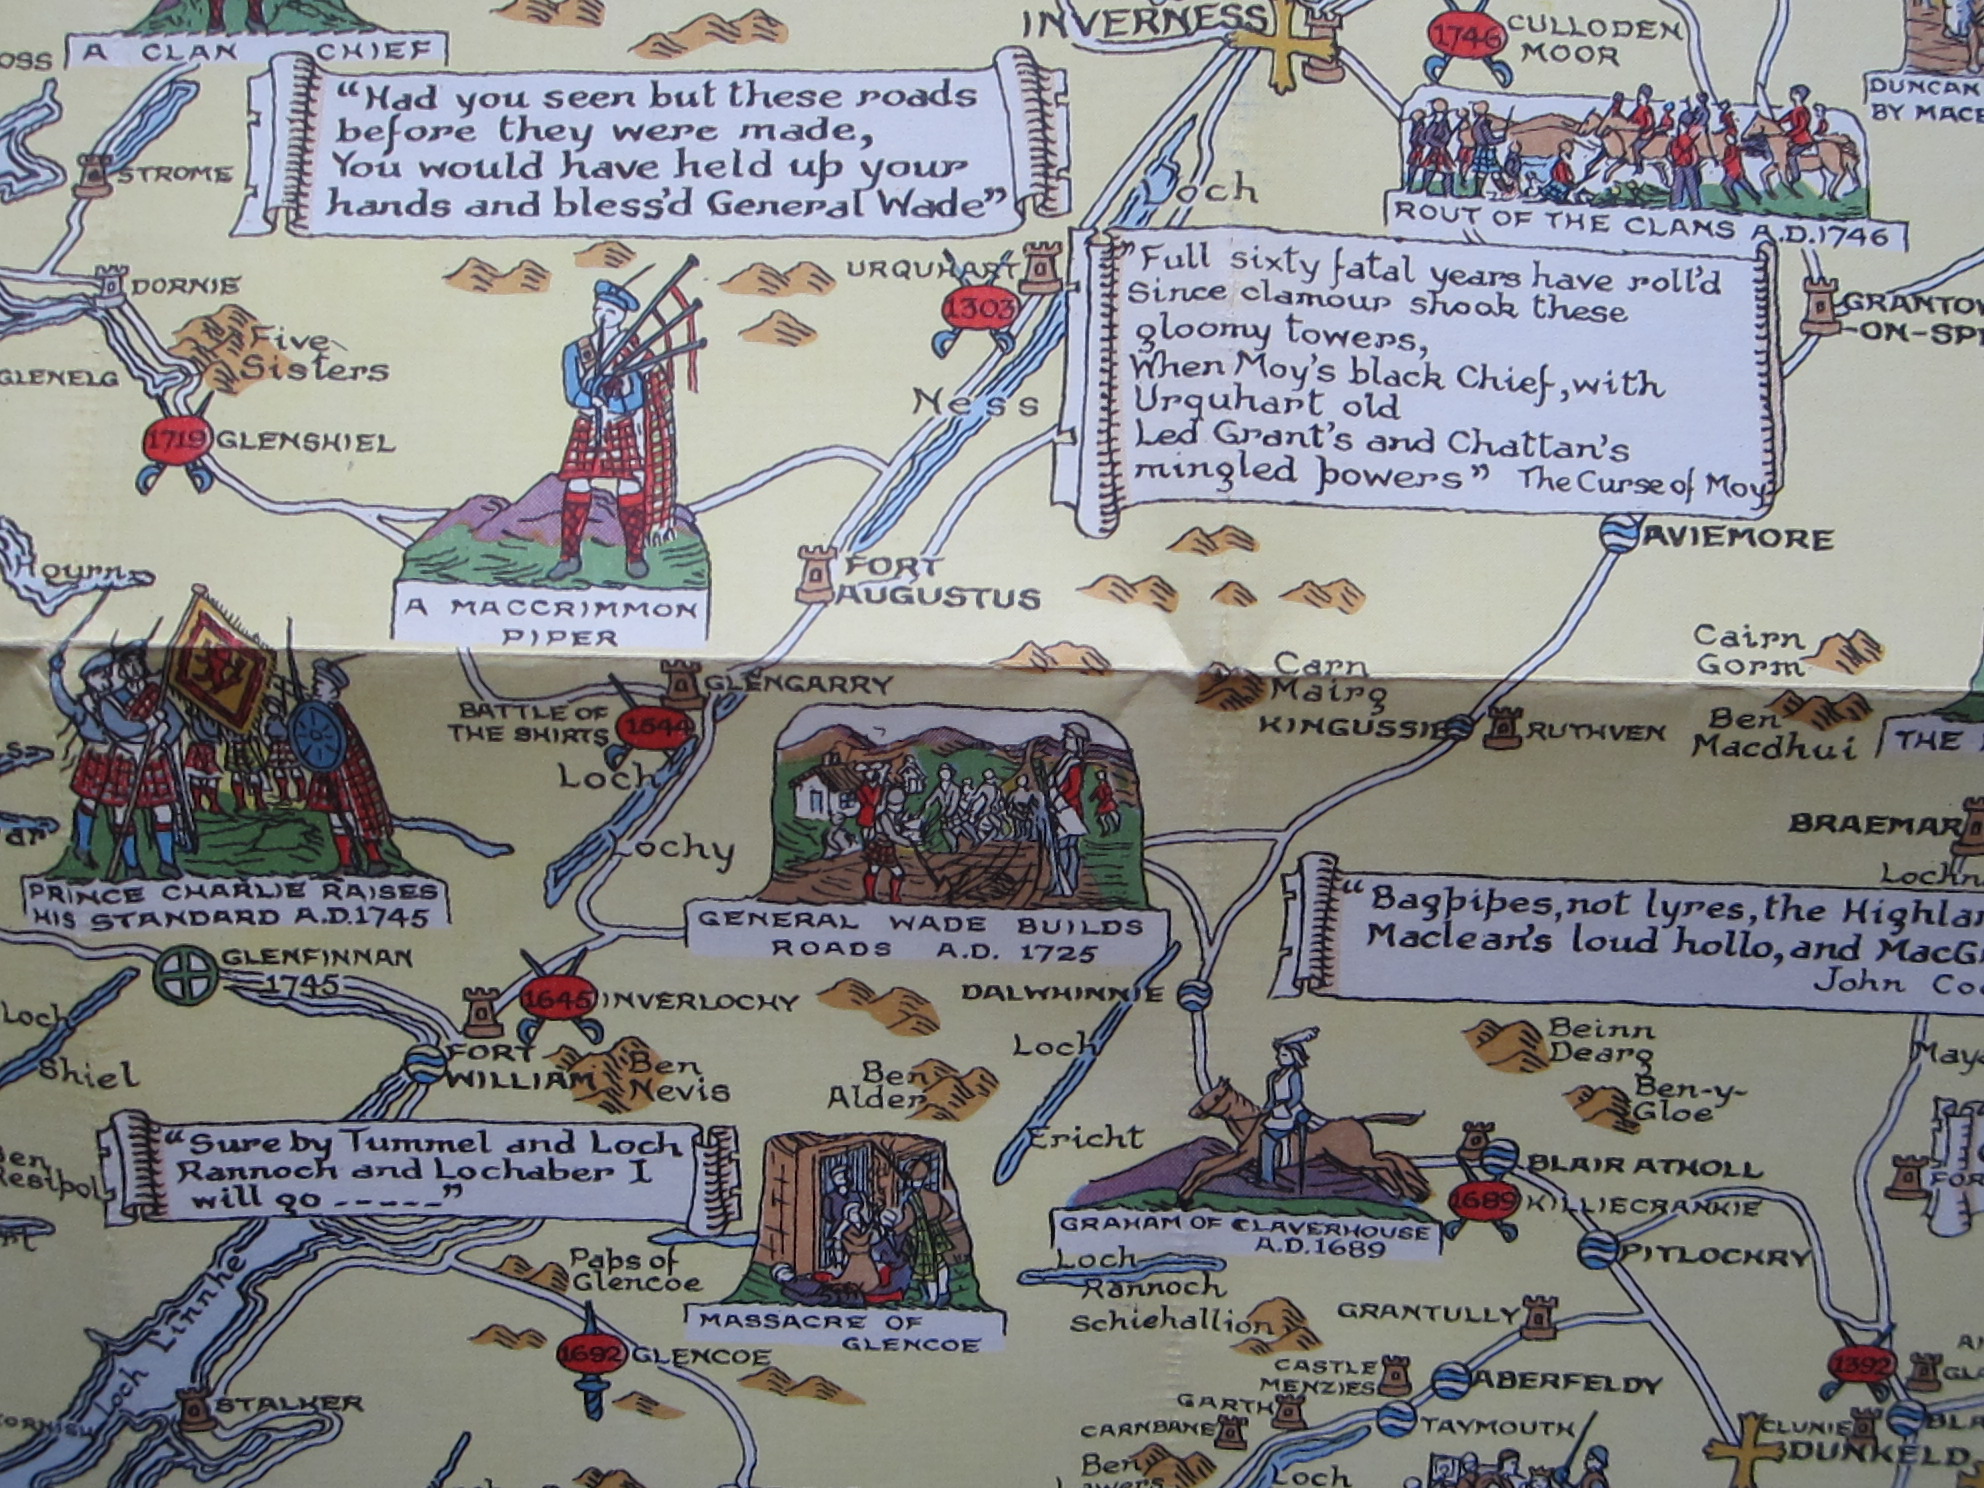 INVERNESS
1746
CULLODEN
MOOR
OSS
A CLAN CHIEF
DUNCAN
"Had you seen but these roads
before they were made,
You would have held up your
hands and bless'd General Wade"
STROME
Loch
ROUT OF THE CLANS A.D.1746
DORNIE
URQUHART
1303
"Full sixty fatal years have roll'd
Since clamour shook these
gloomy towers,
When Moy's black Chief, with
Urquhart old
Led Grant's and Chattan's
mingled powers" The Curse of Moy
-ON-SP
Five
Sisters
GLENELG
Ness
1719
GLENSHIEL
AVIEMORE
Hourn
FORT
AUGUSTUS
A MACCRIMMON
PIPER
Cairn
Gorm
Carn
Mairg
GLENGARRY
BATTLE OF
THE SHIRTS
1544
KINGUSSIE
RUTHVEN
Ben
Macdhui
THE
Loch
Lochy
BRAEMAR
PRINCE CHARLIE RAISES
HIS STANDARD A.D.1745
GENERAL WADE BUILDS
ROADS A.D. 1725
"Bagpipes, not lyres, the Highla
Maclean's loud hollo, and MacG
John Co
GLENFINNAN
1745
1645
INVERLOCHY
DALWHINNIE
Loch
Shiel
FORT
WILLIAM
Ben
Nevis
Ben
Alder
Loch
Ericht
Beinn
Dearg
Ben-y-
Gloe
May
"Sure by Tummel and Loch
Rannoch and Lochaber I
will go -----"
Resipol
BLAIR ATHOLL
1689
KILLIECRANKIE
FOR
GRAHAM OF CLAVERHOUSE
A.D.1689
PITLOCHRY
Paps of
Glencoe
Loch
Rannoch
Schiehallion
Loch Linnhe
MASSACRE OF
GLENCOE
GRANTULLY
1692
GLENCOE
1392
CASTLE
MENZIES
ABERFELDY
STALKER
GARTH
CARNBANE
TAYMOUTH
CLUNIE
DUNKELD
BLA
Ben
Loch